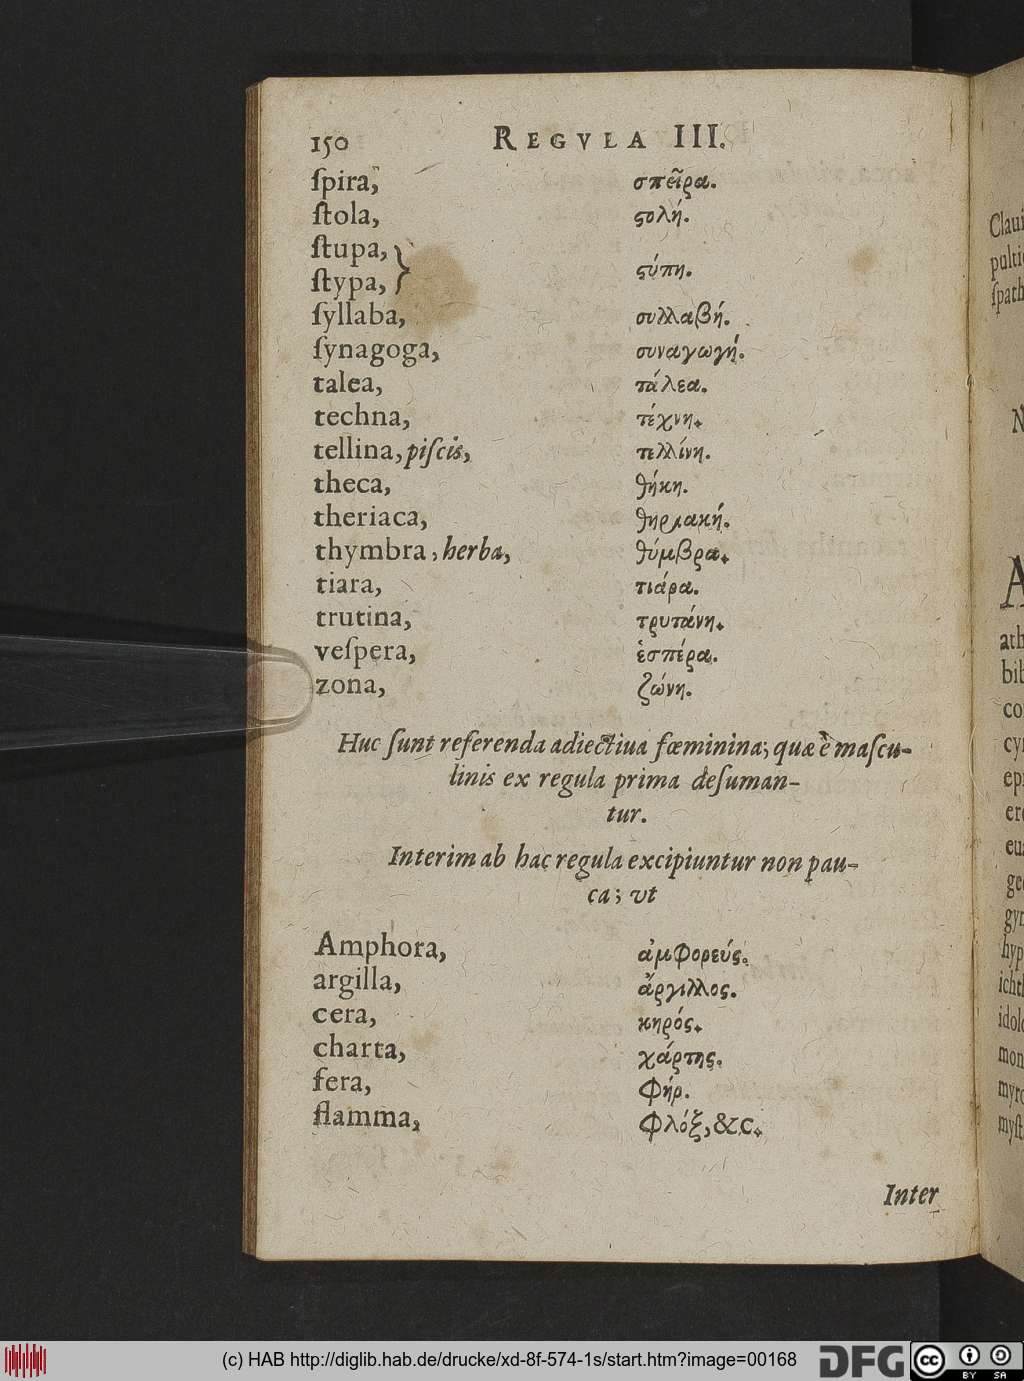 150 REGVLA III.
ſpira, σπεῖρα.
ſtola, ςολή.
ſtupa,
ſtypa, } ςύπη.
ſyllaba, συλλαβή.
ſynagoga, συναγωγή.
talea, τάλεα.
techna, τέχνη.
tellina, piſcis, τελλίνη.
theca, θήκη.
theriaca, θηριακή.
thymbra, herba, θύμβρα.
tiara, τιάρα.
trutina, τρυτάνη.
veſpera, ἑσπέρα.
zona, ζώνη.
Huc ſunt referenda adiectiua fœminina; quæ è maſcu-
linis ex regula prima deſuman-
tur.
Interim ab hac regula excipiuntur non pau-
ca; vt
Amphora, ἀμφορεύς.
argilla, ἄργιλλος.
cera, κηρός.
charta, χάρτης.
fera, φήρ.
flamma, φλόξ, &c.
Inter
Claui
pulti
ſpath
N
A
ath
bib
co
cyn
epi
ere
eu
geo
gyn
hyp
icht
idol
mon
myr
myſt
(c) HAB http://diglib.hab.de/drucke/xd-8f-574-1s/start.htm?image=00168
DFG
cc
BY SA